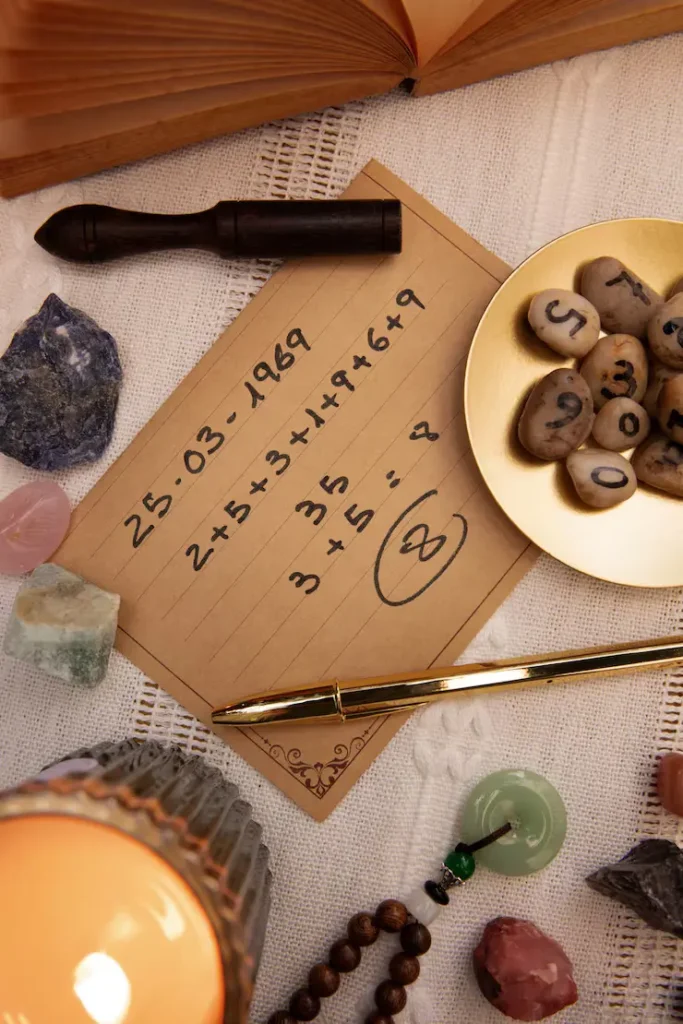 25.03-1969
2+5+3+1+9+6+9
35
3+5 = 8
8
5
3
9
0
0